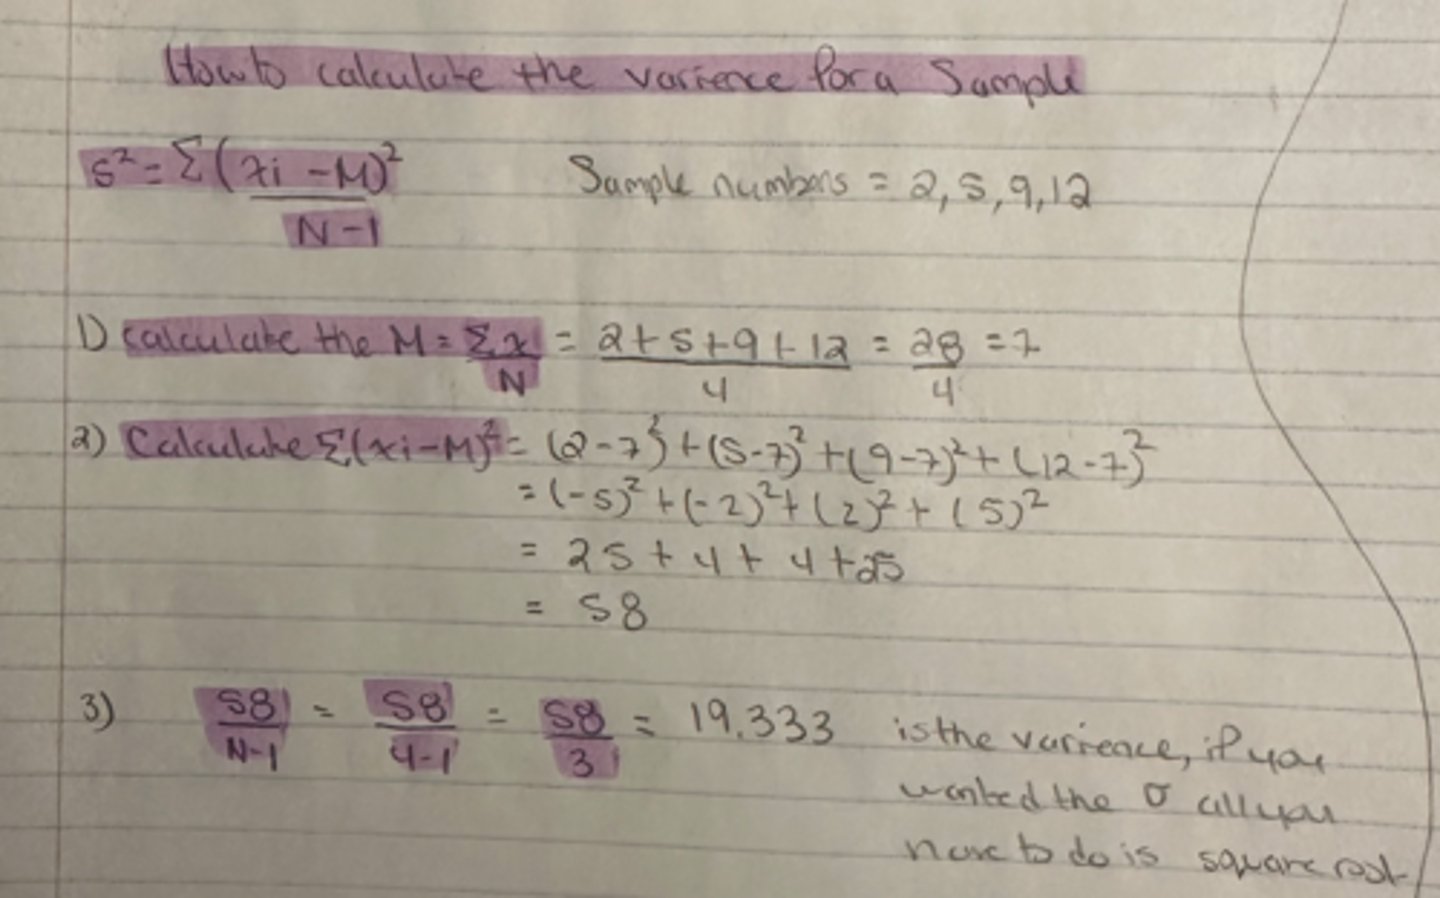 How to calculate the varience for a Sample
s² = Σ(xi - M)² / N-1
Sample numbers = 2, 5, 9, 12
1) calculate the M = Σx/N = 2+5+9+12/4 = 28/4 = 7
2) Calculate Σ(xi-M)² = (2-7)² + (5-7)² + (9-7)² + (12-7)²
= (-5)² + (-2)² + (2)² + (5)²
= 25 + 4 + 4 + 25
= 58
3) 58/N-1 = 58/4-1 = 58/3 = 19.333 is the varience, if you
wanted the σ all you
have to do is square root